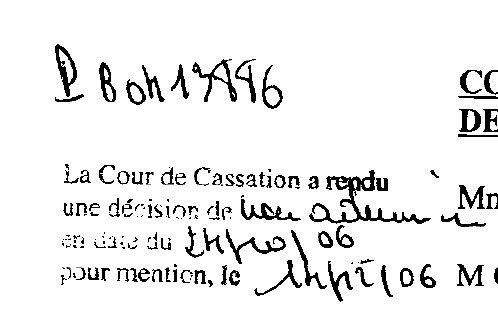 P B 04 13886
CO
DE
La Cour de Cassation a rendu
une décision de non admission
en date du 24/10/06
pour mention, le 14/12/06
Mn
M